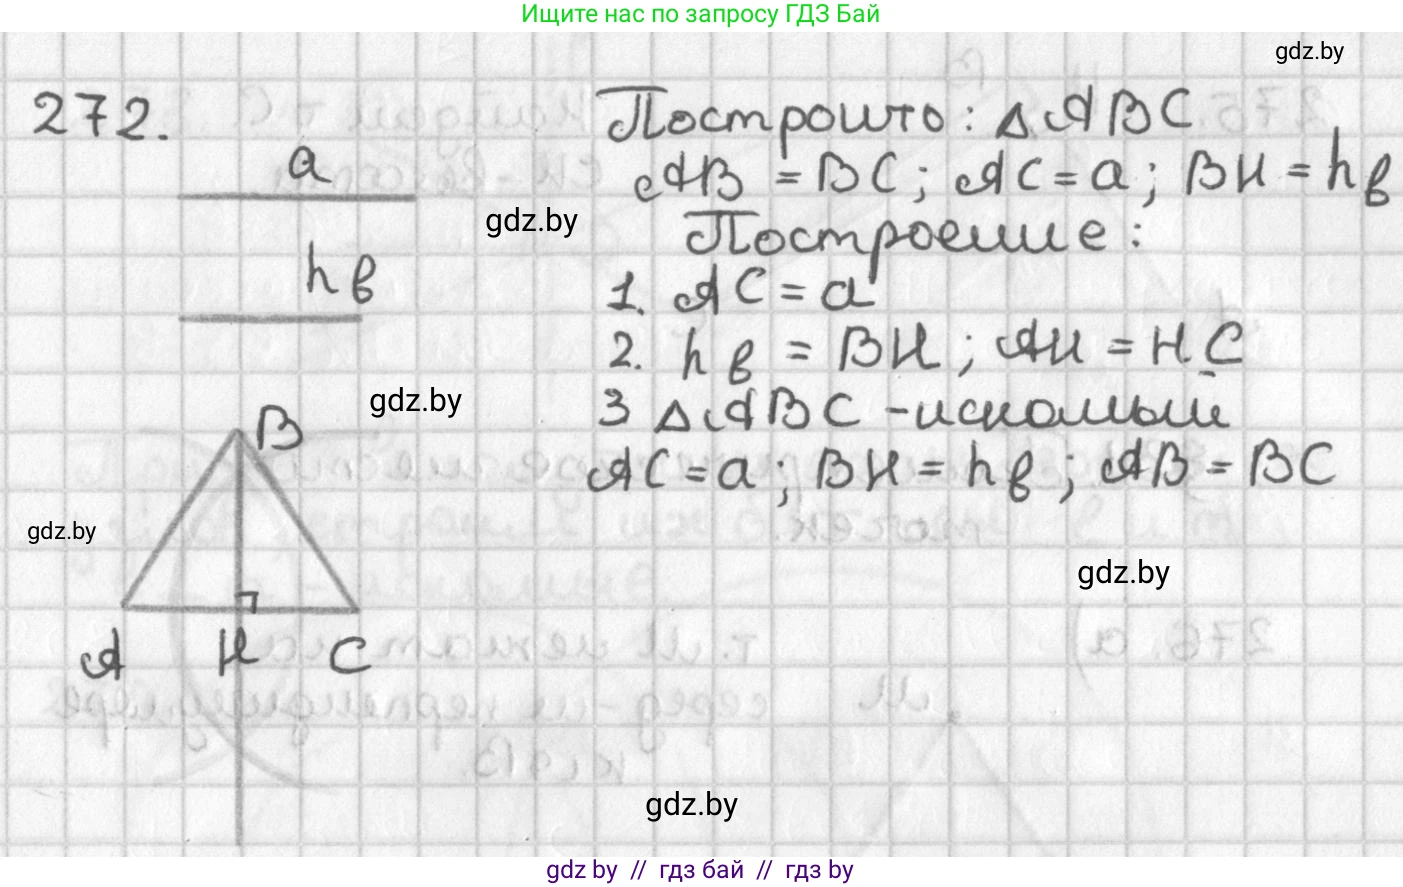 Ищите нас по запросу ГДЗ Бай
gdz.by
272.
a
gdz.by
hв
gdz.by
B
gdz.by
A H C
Построить: △ABC
AB = BC; AC = a; BH = hв
Построение:
1. AC = a
2. hв = BH; AH = HC
3 △ABC - искомый
AC = a; BH = hв; AB = BC
gdz.by
gdz.by
gdz by // гдз бай // гдз by